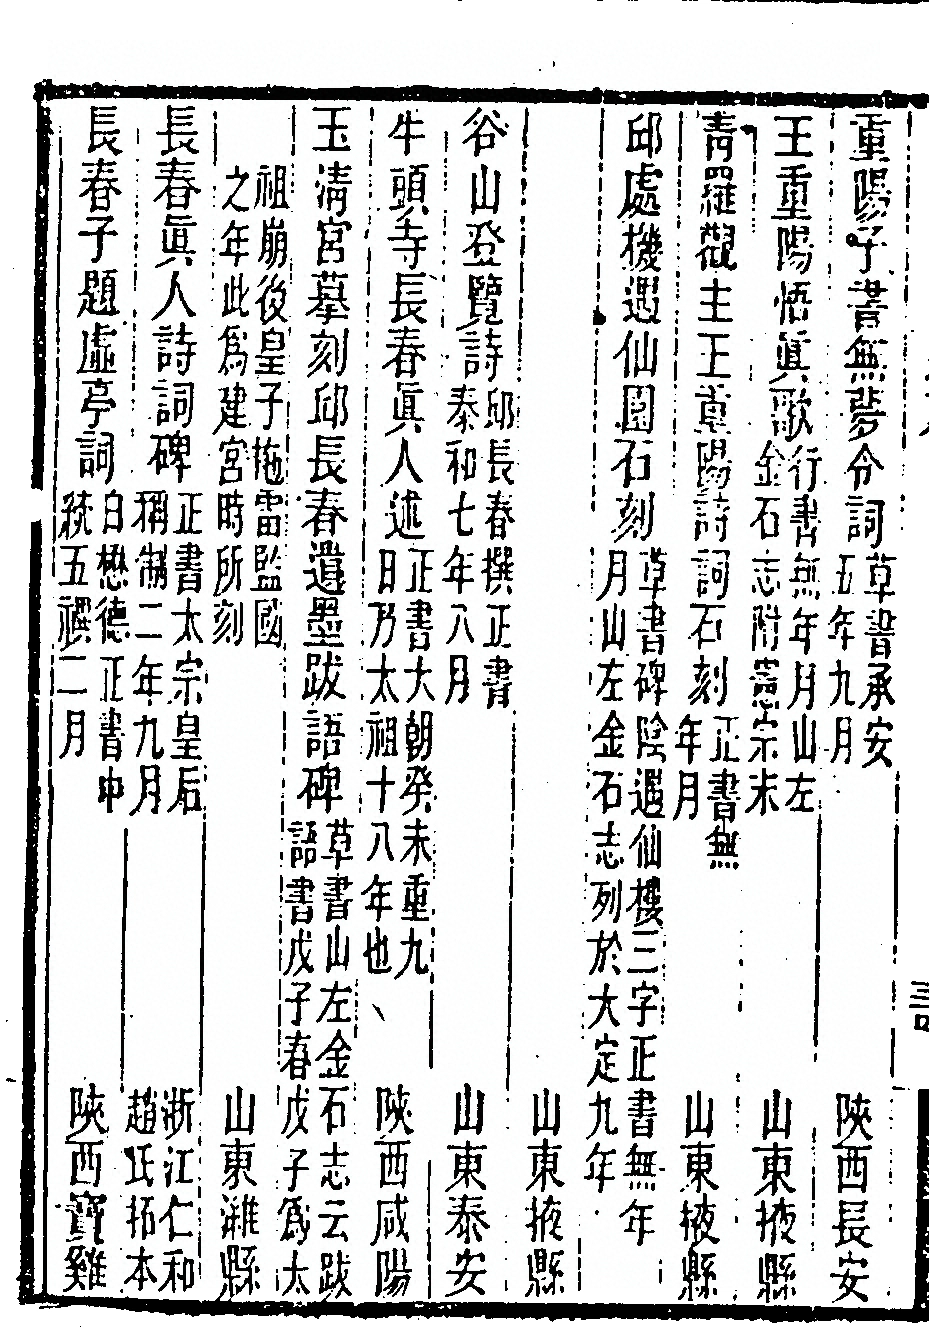 重陽子書無夢令詞草書承安五年九月 陝西長安
王重陽悟眞歌行書無年月山左金石志附憲宗末 山東掖縣
靑羅觀主王重陽詩詞石刻正書無年月 山東掖縣
邱處機遇仙園石刻草書碑陰遇仙樓三字正書無年月山左金石志列於大定九年
山東掖縣
谷山登覽詩邱長春撰正書泰和七年八月 山東泰安
牛頭寺長春眞人述正書大朝癸未重九日乃太祖十八年也 陝西咸陽
玉淸宮摹刻邱長春遺墨跋語碑草書山左金石志云跋語書戊子春戊子爲太
祖崩後皇子拖雷監國之年此爲建宮時所刻 山東濰縣
長春眞人詩詞碑正書太宗皇后稱制二年九月 浙江仁和趙氏拓本
長春子題虛亭詞白懋德正書中統五禩二月 陝西寶雞